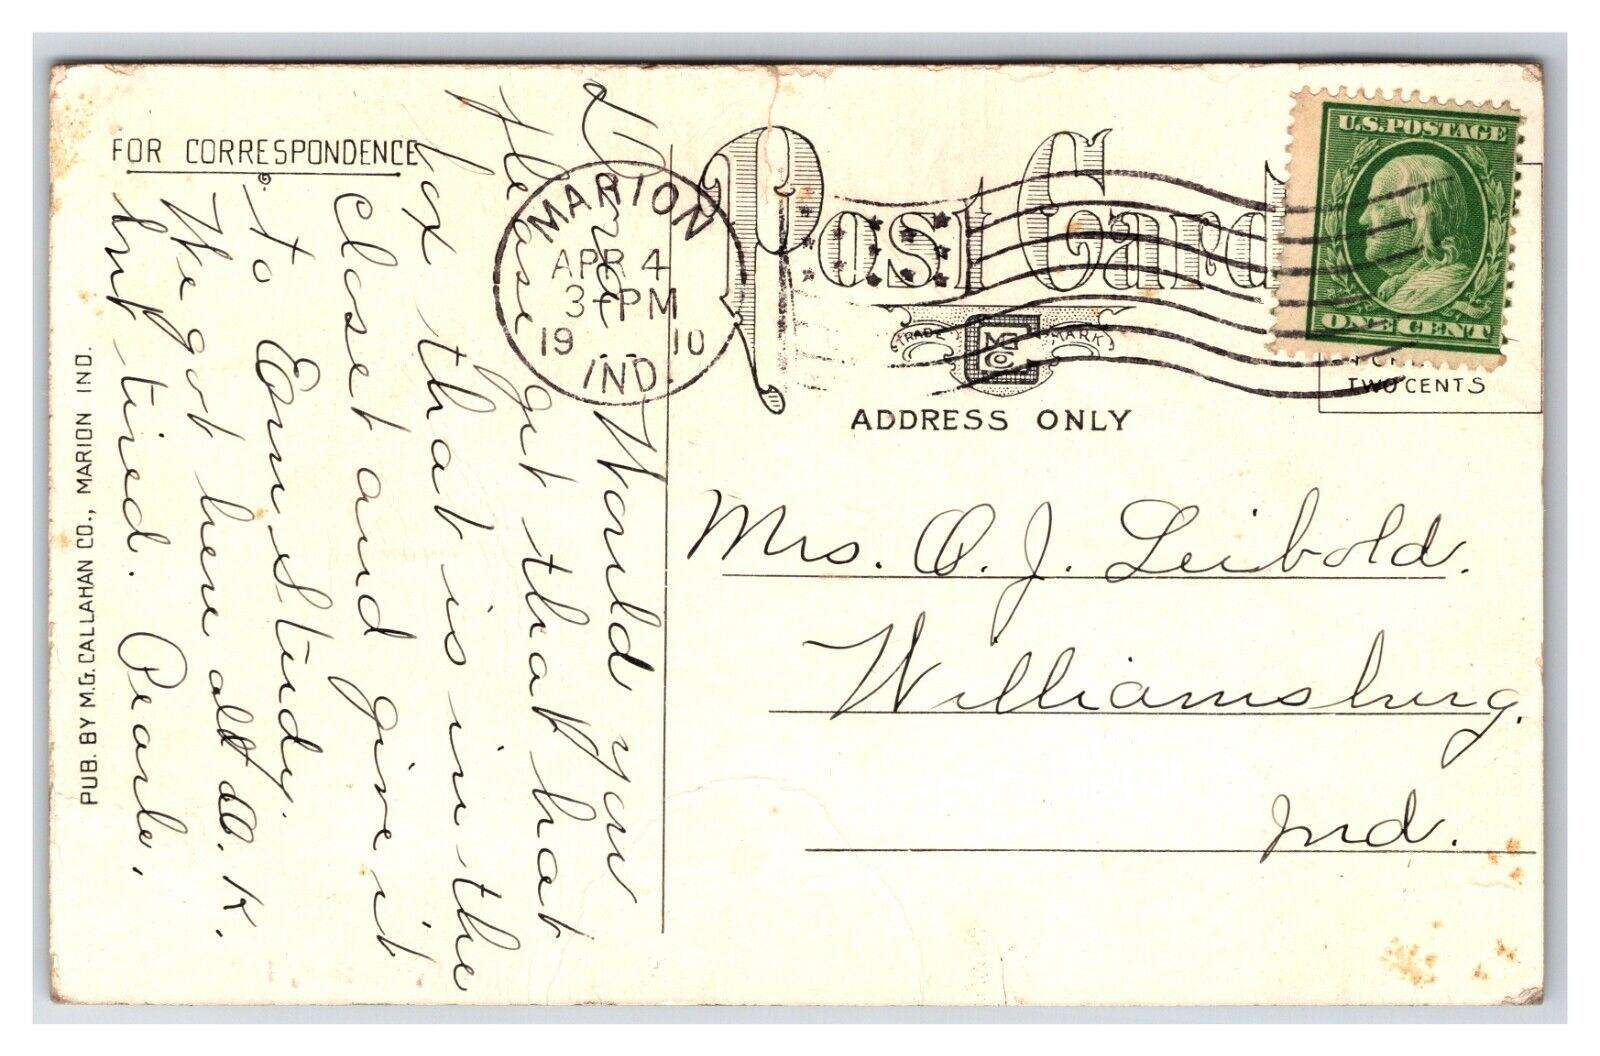 FOR CORRESPONDENCE
Post Card
TRADE MARK
ADDRESS ONLY
MARION
APR 4
3-PM
1910
IND.
U.S.POSTAGE
ONE CENT
TWO CENTS
Would you
please get that hat
box that is in the
closet and give it
to Erni Study.
We got here all O.K.
but tired. Pearle.
Mrs. O. J. Leibold.
Williamsburg,
Ind.
PUB. BY M.G. CALLAHAN CO., MARION IND.